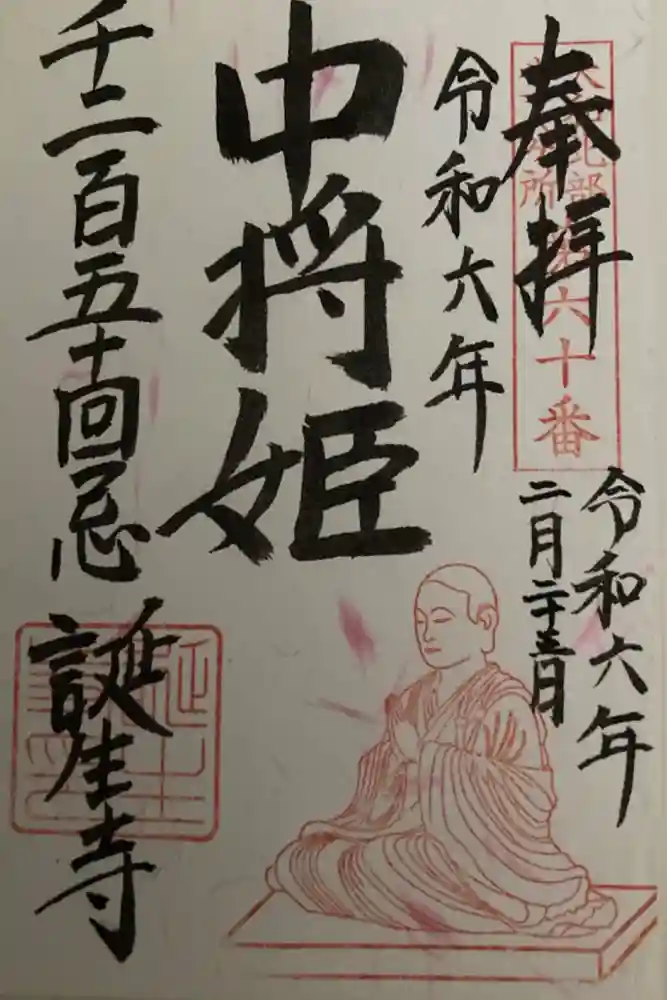 奉拝
六十番
令和六年
二月二十三日
令和六年
中将姫
千二百五十回忌
誕生寺